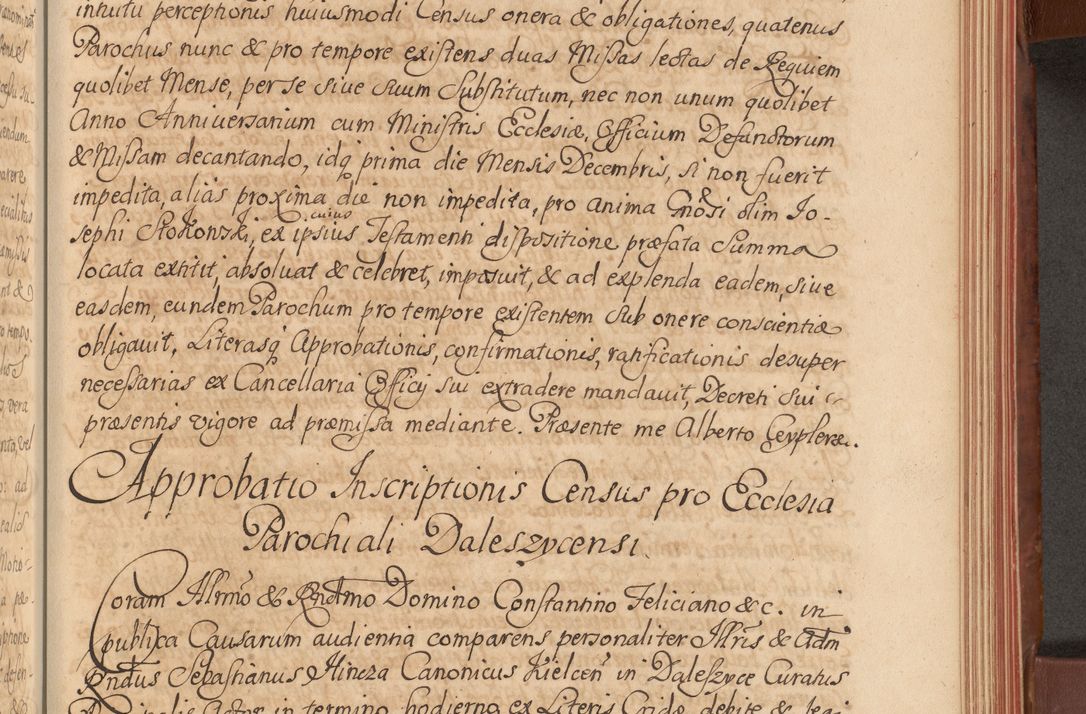 intuitu perceptionis huiusmodi Census onera & obligationes, quatenus
Parochus nunc & pro tempore existens duas Missas lectas de Requiem
quolibet Mense, per se siue suum Substitutum, nec non unum quolibet
Anno Anniuersarium cum Ministris Ecclesiæ, Officium Defunctorum
& Missam decantando, idq́ prima die Mensis Decembris, si non fuerit
impedita, aliàs proxima die non impedita, pro anima Gnosi olim Jo-
sephi Stokowski, ex cuius ipsius Testamenti dispositione præfata Summa
locata extitit, absoluat & celebret, imposuit, & ad explenda eadem, siue
easdem, eundem Parochum pro tempore existentem sub onere conscientiæ
obligauit, Literasq́ Approbationis, confirmationis, ratificationis desuper
necessarias ex Cancellaria Officij sui extradere mandauit, Decreti sui
præsentis vigore ad præmissa mediante. Præsente me Alberto Ceypleræ.
Approbatio Inscriptionis Census pro Ecclesia
Parochiali Daleszycensi.
Coram Illrmo & Rndmo Domino Constantino Feliciano &c. in
publica Causarum audientia comparens personaliter Illris & Adm
Rndus Sebastianus Hincza Canonicus Kielceñ in Daleszyce Curatus
Principalis Actor in termino hodierno ex Literis Crida debite & legi